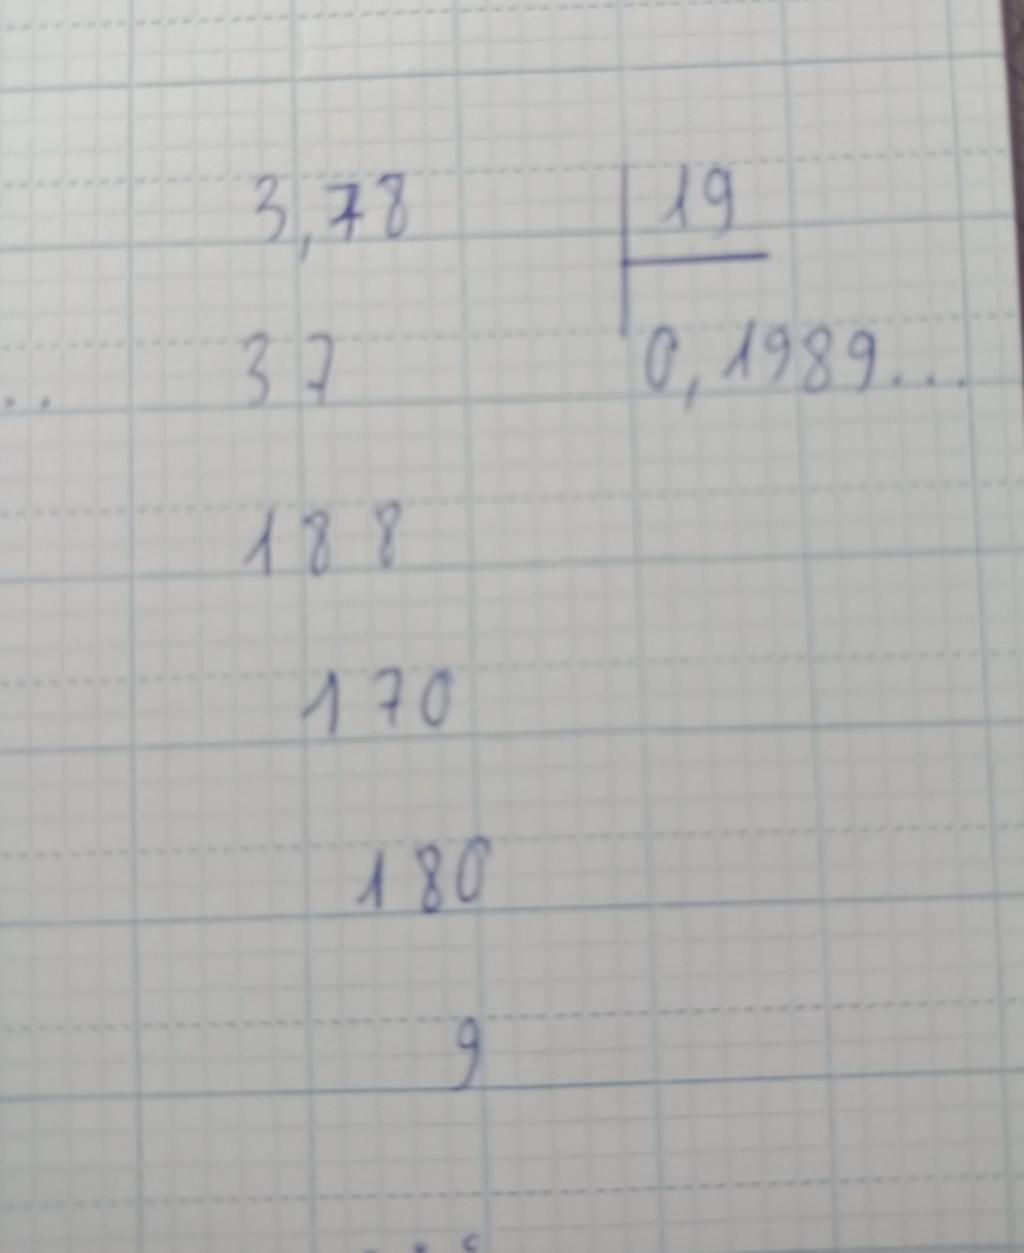 3,78 19
.. 37 0,1989...
188
170
180
9